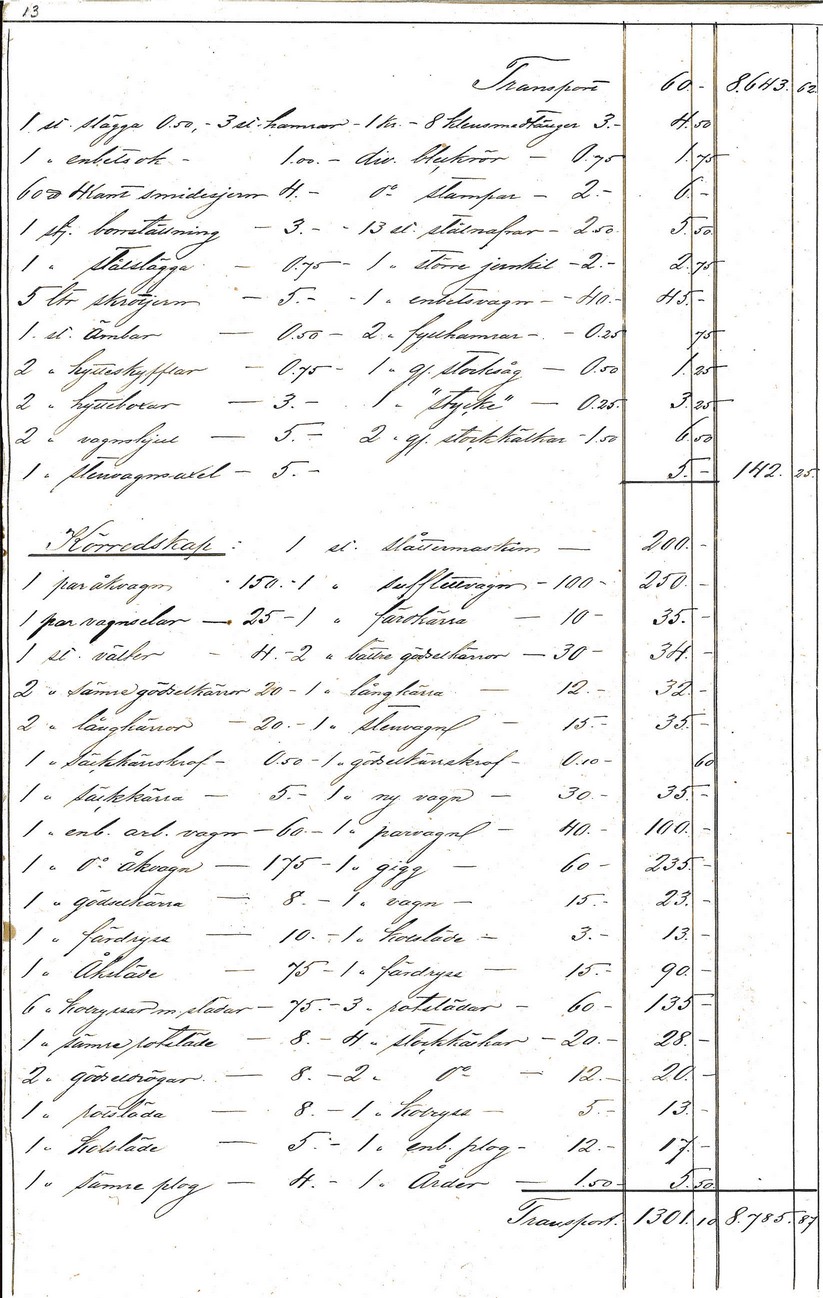 13
Transport 60.- 8.643. 62
1 st. slägga 0.50,- 3 st. hamrar - 1 kr. - 8 klensmedtänger 3.- 4.50
1 " enbetsok - 1.00.- div. bleckrör - 0.75 1.75
60 4kant smidesjern 4.- do stampar - 2.- 6.-
1 st. borrställning - 3.- - 13 st. stålnafrar - 2.50 5.50
1 " stålslägga - 0.75 - 1 " större jernkil - 2.- 2.75
5 skrotjern - 5.- - 1 " enbetsvagn - 40.- 45.-
1 st. Ämbar - 0.50 - 2 " fyllhamrar - - 0.25 75
2 " hytteskyfflar - 0.75 - 1 " gl. stocksåg - 0.50 1.25
2 " hytteboxar - 3.- 1 " "stycke" - 0.25 3.25
2 " vagnshjul - 5.- 2 " gl. stockkälkar - 1.50 6.50
1 " stenvagnsaxel - 5.- 5.- 142. 25
Körredskap: 1 st. slåttermaskin - 200.-
1 paråkvagn - 150.- 1 " sufflettvagn - 100 - 250.-
1 par vagnselar - 25 - 1 " färdkärra - 10 - 35.-
1 st. välter - 4.- 2 " bättre gödselkärror - 30 - 34.-
2 " sämre gödselkärror 20 - 1 " långkärra - 12.- 32.-
2 " långkärror - 20.- 1 " stenvagn - 15.- 35.-
1 " säckkärrskrof - 0.50 - 1 " gödselkärrskrof - 0.10 - 60
1 " säckkärra - 5.- 1 " ny vagn - 30.- 35.-
1 " enb. arb. vagn - 60.- 1 " parvagn - 40.- 100.-
1 " do åkvagn - 175 - 1 " gigg - 60 - 235.-
1 " gödselkärra - 8.- 1 " vagn - 15.- 23.-
1 " färdryss - 10.- 1 " Kolsläde - 3.- 13.-
1 " Åksläde - 75 - 1 " färdryss - 15.- 90.-
6 " kolryssar m. slädar - 75.- 3 " rotslädar - 60 - 135 -
1 " sämre rotsläde - 8.- 4 " stockkälkar - 20.- 28.-
2 " gödseldrögar - 8.- 2 " do - 12.- 20.-
1 " rotsläda - 8.- 1 " Kolryss - 5.- 13.-
1 " Kolsläde - 5.- 1 " enb. plog - 12.- 17.-
1 " sämre plog - 4.- 1 " Årder - 1.50 - 5.50
Transport. 1301.10 8.785.87